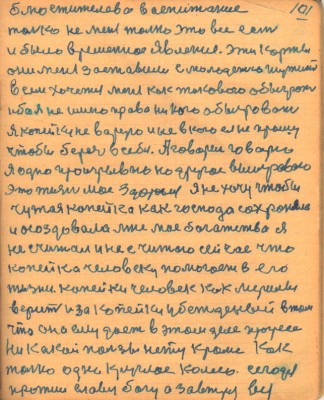 101
воспитание
только не мен только это все если
и было временное явление. Эти карты
они меня заставили с молодежью шутит
всем хочется меня как такового обыгроть
ибо я не имею права никого обыгроват
Я копейки не ворую и не в кого ее не прошу
чтобы берег в себе. А говорил говорю
Я одно проигрываю но другое выигроваю
Это жизн мое здоровя Я не хочу чтобы
чужая копейка как господа сохроняла
и создовала мне мое богатства Я
не считал и не считаю сейчас что
копейка человеку помогает в его
жизни. копейки человек как мертвым
верит и за копейки убежденный в том
что она ему дает в этом деле
Никакой ползы нету кроме как
только одно круглое колесо. сегодня
прожили славу богу а завтра